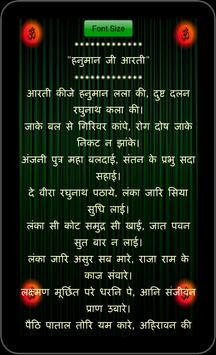 Font Size
"हनुमान जी आरती"
आरती कीजे हनुमान लला की, दुष्ट दलन
रघुनाथ कला की।
जाके बल से गिरिवर कांपे, रोग दोष जाके
निकट न झांके।
अंजनी पुत्र महा बलदाई, संतन के प्रभु सदा
सहाई।
दे वीरा रघुनाथ पठाये, लंका जारि सिया
सुधि लाई।
लंका सी कोट समुद्र सी खाई, जात पवन
सुत बार न लाई।
लंका जारि असुर सब मारे, राजा राम के
काज संवारे।
लक्ष्मण मूर्छित परे धरनि पे, आनि संजीवन
प्राण उबारे।
पैठि पाताल तोरि यम कारे, अहिरावन की